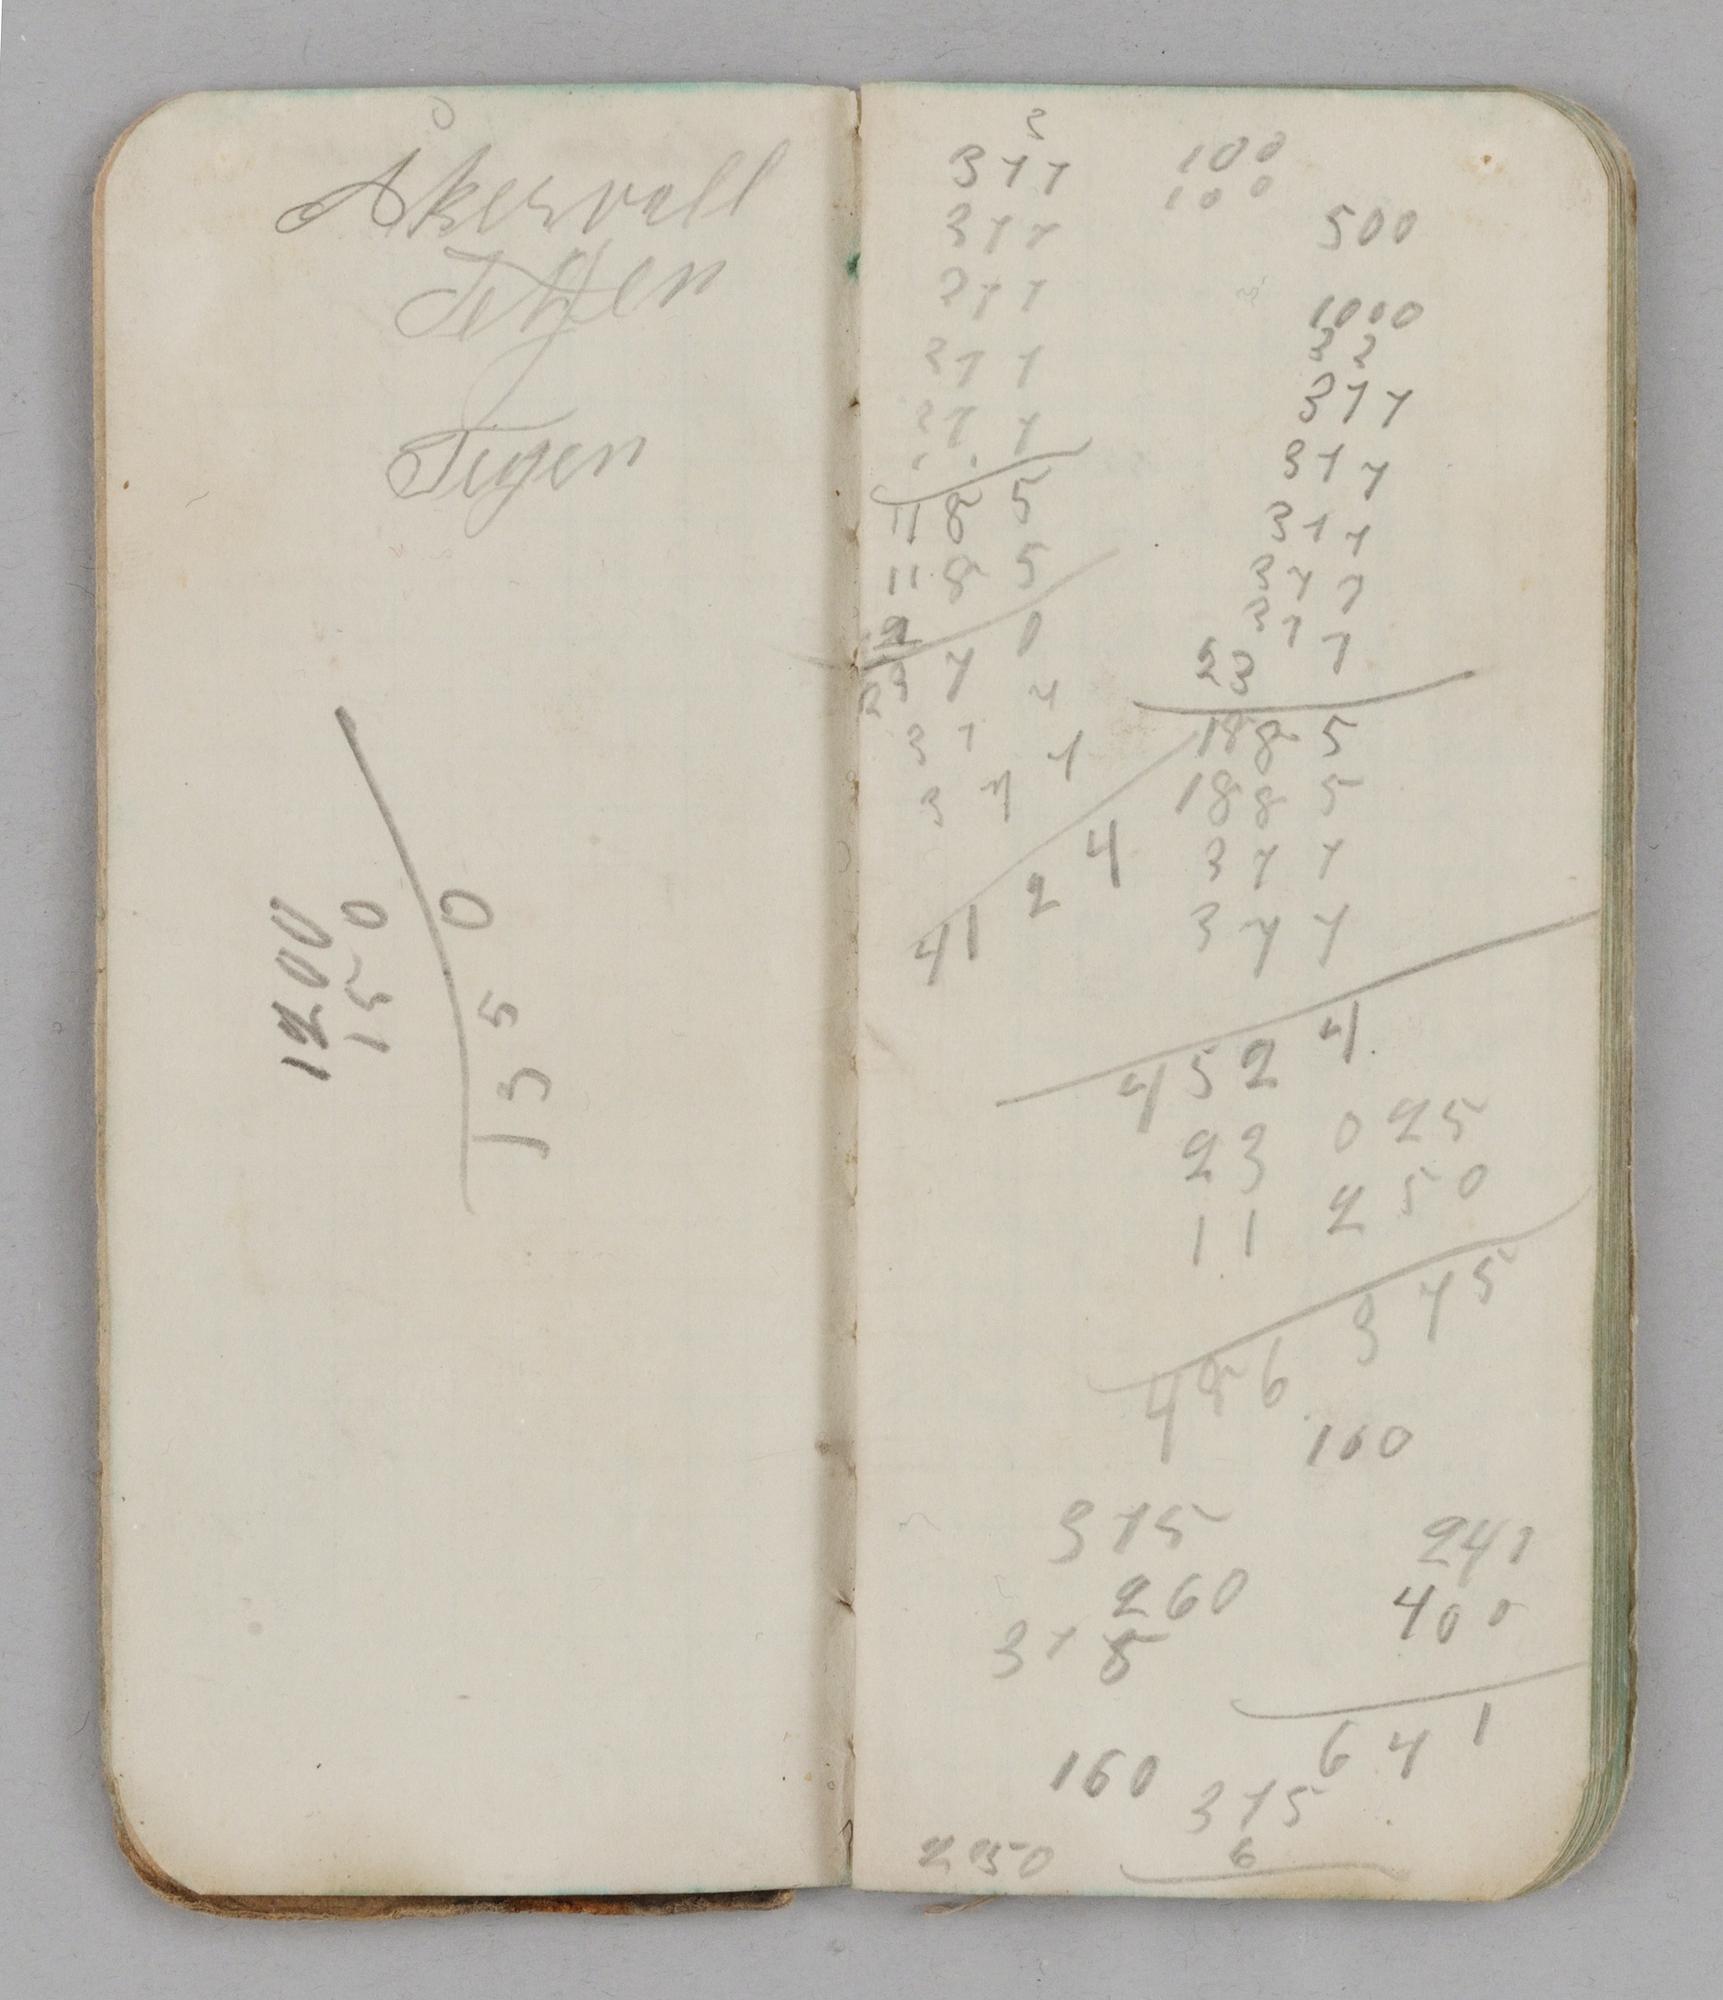 Åkervall
Tegen
1200
150
1350
3
377
377
377
377
377
11 8 5
11 8 5
2
23 7 0
3 7 7
3 7 7
41 2 4
100
100
500
1000
3 2
377
377
377
377
377
23
188 5
188 5
3 7 7
3 7 7
452 4
23 025
11 250
486 375
160
375
260
375
241
400
641
160
375
6
250